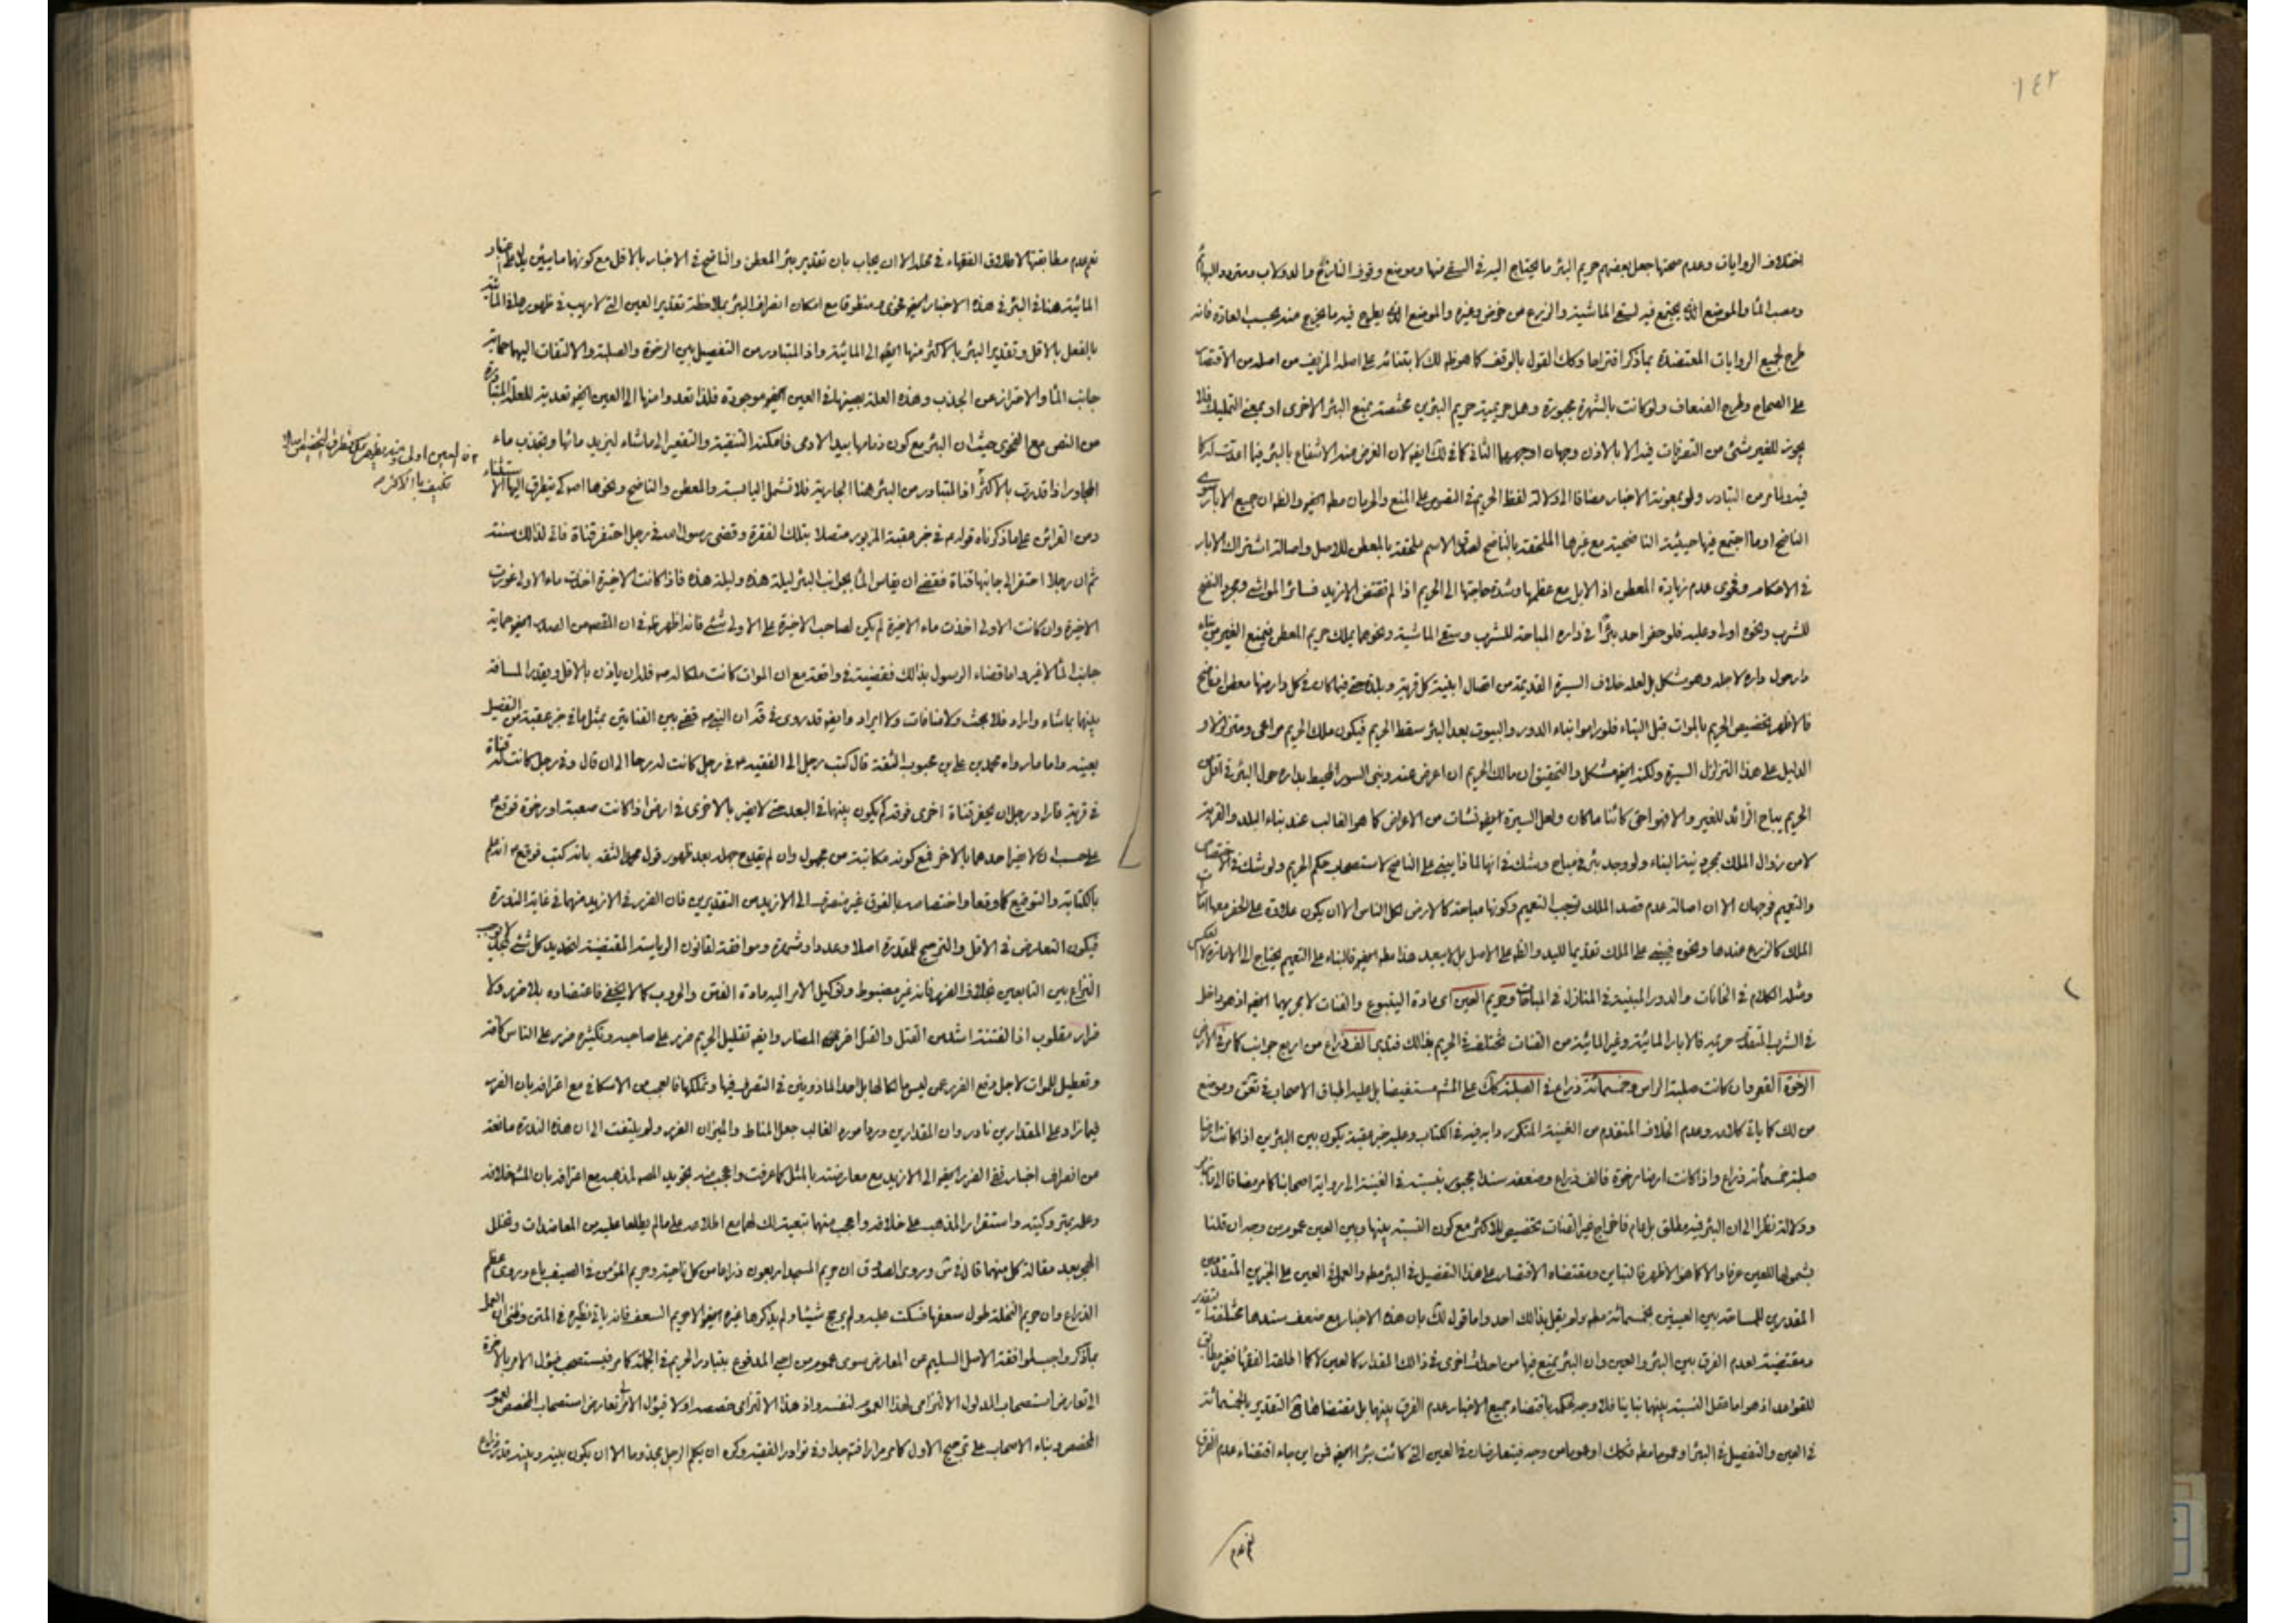 ١٤٢
اختلاف الروايات وعدم صحتها جعل بعضهم حريم البئر ما يحتاج اليه في السقي منها وموضع وقوف النازح والدولاب ومتردد البهائم
ومصب الماء والموضع الذي يجتمع فيه لسقي الماشية والزرع من حوض وغيره والموضع الذي يطرح فيه ما يخرج منه بحسب العادة فانه
طرح لجميع الروايات المعتضدة بما ذكر اقتراحا وكك القول بالوقف كما هو ظ لك لابتنائه على اصله المزيف من اصله من الاقتصار
على الصحاح وطرح الضعاف ولو كانت بالشهرة مجبورة وهل حريمية حريم البئرين مختصة بمنع البئر الاخرى او بمعنى التمليك فلا
يجوز للغير شئ من التصرفات فيه الا بالاذن وجهان اوجههما الثاني كما في لك ايضا لان الغرض منه الانتفاع بالبئر فيما اعدت له كما
فيه ولما مر من التبادر ولو بمعونة الاخبار مضافا الى دلالة لفظ الحريم في النصوص على المنع والحرمان مط ايضا والظ ان جميع الابار
الناضح او ما اجتمع فيها حيثية الناضحية مع غيرها الملحقة بالناضح لصدق الاسم ملحقة بالمعطن للاصل واصالة اشتراك الابار
في الاحكام وفحوى عدم زيادة المعطن اذ الابل مع عظمها وشدة حاجتها الى الحريم اذا لم تقتض الازيد فسائر المواشي ومجرد النضح
للشرب ونحوه اولى وعليه فلو حفر احد بئرا في داره المباحة للشرب وسقي الماشية ونحوهما يملك حريم المعطن فيمنع الغير من بناء
دار حول داره لاجله وهو مشكل بل لعله خلاف السيرة القديمة من اتصال ابنية كل قرية وبلدة حتى فيما كان في كل دار منها معطن او ناضح
فالاظهر تخصيص الحريم بالموات قبل البناء فلو راموا بناء الدور والبيوت بعد البئر سقط الحريم فيكون ملك الحريم مراعى ومتزلزلا و
الدليل على هذا التزلزل السيرة ولكنه ايضا مشكل والتحقيق ان مالك الحريم ان اعرض عنه وبنى السور المحيط بداره حول البئر في اقل من
الحريم يباح الزائد للغير والا فهو احق كائنا ما كان ولعل السيرة ايضا نشأت من الاعراض كما هو الغالب عند بناء البلد والقرية
لا من زوال الملك بمجرد نية البناء ولو وجد بئر في مباح وشك في انها لماذا يبقى على الناضح لاستصحاب حكم الحريم ولو شك في الاختصاص
والتعميم فوجهان الا ان اصالة عدم قصد الملك توجب التعميم وكونها مباحة كالارض لكل الناس الا ان يكون علاوة على الحفر معها اثبات
الملاك كالزرع عندها ونحوه فيبقى على الملك تقديما لليد والظ على الاصل بل لا يبعد هذا مط ايضا فالبناء على التعميم يحتاج الى الامارة لا العكس
ومثله الكلام في الخانات والدور المبنية في المنازل في المباحات وحريم العين اى مادة الينبوع والقنات لا مجريهما ايضا اذ هو داخل
في الشرب المتقدم حريمه فالابار المائية وغير المائية من القنات تختلف في الحريم بذالك فتدبر الف ذراع من اربع جوانب كما مر في الارض
الرخوة القعر وان كانت صلبة الراس وخمسمائة ذراع في الصلبة كك على المش مستفيضا بل عليه اطباق الاصحاب في تعق وموضع
من لك كما ياتى كلامه وعدم الخلاف المتقدم من الغنية المتكرر دابه فيه في الكتاب وعليه خبر عقبة يكون بين البئرين اذا كانت ارضا
صلبة خمسمائة ذراع واذا كانت ارضا رخوة فالف ذراع وضعف سنده مجبور بنسبته في الغنية الى رواية اصحابنا كما مر مضافا الى ما مر
ودلالته نظرا الى ان البئر فيه مطلق بل عام فاخراج غير القنات تخصيص للاكثر مع كون النسبة بينها وبين العين عموم من وجه ان قلنا
بشمولها للعين عرفا والا كما هو الاظهر فالتباين ومقتضاه الاقتصار على هذا التفصيل في البئر مط والعمل في العين على الخبرين المتقدمين
المقدرين للمساحة بين العينين بخمسمائة مط ولم يقل بذالك احد واما قول لك بان هذه الاخبار مع ضعف سندها مختلفة التقدير
ومقتضية لعدم الفرق بين البئر والعين وان البئر يمنع فيها من احداث اخرى في ذالك المقدار كالعين لا كما اطلقه الفقهاء فغير مطابق
للقواعد اذ هو اما عقل النسبة بينهما تباينا فلا وجه لحكمه باقتضاء جميع الاخبار عدم الفرق بينهما بل مقتضاها ح التقدير بالخمسمائة
في العين والتفصيل في البئر او عموما مط فكك او عموما من وجه فيتعارضان في العين التى كانت بئرا ايضا فمن اين جاء اقتضاء عدم الفرق
نعم عدم
نعم عدم مطابقتها لاطلاق الفقهاء في محله الا ان يجاب بان تقدير بئر المعطن والناضح في الاخبار بالاقل مع كونها مايين بلا اعتبار
المائية هنا في البئر في هذه الاخبار ايضا فحوى ومنطوقا مع امكان انصراف البئر بملاحظة تقدير العين التى لا ريب في ظهورها في المائية
بالفعل بالاقل وتقدير البئر بالاكثر منها ايضا الى المائية واذ المتبادر من التفصيل بين الرخوة والصلبة والالتفات اليها حماية
جانب الماء والاحتراز عن الجذب وهذه العلة بعينها في العين ايضا موجودة فلذا تعدوا منها الى العين ايضا تعدية للعلة المتبادرة
من النص مع الفحوى حيث ان البئر مع كون زمامها بيد الادمى فامكنه التنقية والتقعير الى ما شاء ليزيد مائها ويجذب ماء
المجاور اذا قدرت بالاكثر اذ المتبادر من البئر هنا الجارية فلا تشمل اليابسة والمعطن والناضح ونحوها اصلا كى يتطرق اليها الاستثناء
ومن القرائن على ما ذكرناه قوله م في خبر عقبة المزبور متصلا بتلك الفقرة وقضى رسول الله في رجل احتفر قناة واتى لذالك سنة
ثم ان رجلا احتفر الى جانبها قناة فقضى ان يقاس الماء بجوانب البئر ليلة هذه وليلة هذه فاذا كانت الاخيرة اخذت ماء الاولى غورت
الاخيرة وان كانت الاولى اخذت ماء الاخيرة لم يكن لصاحب الاخيرة على الاولى شئ فانه اظهر ظ في ان المقص من الصدر ايضا حماية
جانب الماء لا غير واما قضاء الرسول بذالك فقضية في واقعة مع ان الموات كانت ملكا له ص فله ان ياذن بالاقل ويقدر المسافة
بينها بما شاء واراد فلا بحث ولا منافات ولا ايراد وايضا قد روى في قد ان النبي ص قضى بين القناتين بمثل ما في خبر عقبة من التفصيل
بعينه واما ما رواه محمد بن على بن محبوب الثقة قال كتب رجل الى الفقيه م في رجل كانت له رحا الى ان قال وفي رجل كانت له قناة
في قرية فاراد رجل ان يحفر قناة اخرى فوقه كم يكون بينهما في البعد حتى لا يضر بالاخرى في ارض اذا كانت صعبة او رخوة فوقع م
على حسب ان لا يضر احدهما بالاخر فمع كونه مكاتبة من مجهول وان لم يقدح جهله بعد ظهور قول محمد الثقة بانه كتب فوقع م انه علم
بالكتابة والتوقيع كما وقعا واختصاصه بالفوق غير منصرف الى الازيد من التقديرين فان الضرر في الازيد منهما في غاية الندرة
فيكون التعارض في الاقل والترجيح للمقدرة اصلا وعددا وشهرة وموافقة لقانون الرياسة المقتضية لتحديد كل شئ بحد لا يوجب
النزاع بين التابعين بخلاف الضرر فانه غير مضبوط وتوكيل الامر اليه مادة الفتن والحروب كما لا يخفى فاعتضاده بلا ضرر ولا
ضرار مقلوب اذ الفتنة اشد من القتل والقتل اضر المضار وايضا تقليل الحريم ضرر على صاحبه وتكثيره ضرر على الناس كافة
وتعطيل للموات لاجل دفع الضرر عمن ليس مالكا لها بل احد الماذونين في التصرف فيها وتملكها فالعجب من الاسكافي مع اعترافه بان الضرر
فيما زاد على المقدارين نادر وان المقدارين وردا مورد الغالب جعل المناط والميزان الضرر ولم يلتفت الى ان هذه الندرة مانعة
من انصراف اخبار نفى الضرر ايضا الى الازيد مع معارضته بالمثل كما عرفت واعجب منه تجويد المص لمذهبه مع اعترافه بان المش خلافه
وعليه بحث وكتبه واستقرار المذهب على خلافه واعجب منهما تبعية لك لهما مع اطلاعه على ما لم يطلعا عليه من المعاضدات وتخلل
الجو بعد مقالة كل منهما قال في ش وروى الصادق ان حريم المسجد اربعون ذراعا من كل ناحية وحريم المؤمن في الصيف باع وروى عظم
الذراع وان حريم النخلة طول سعفها فسكت عليه ولم يرجح شيئا ولم يذكرها غيره ايضا الا حريم السعف فانه ياتى نظيره في المتن وظنى ان العمل
بما ذكر واجب لموافقة الاصل السليم عن المعارض سوى عموم من احيى المدفوع بتبادر الحريم في الجملة كما مر فيستصحب فيؤل الامر بالاخرة
الى تعارض استصحاب المدلول الالتزامى لهذا العموم لنفسه واذ هذا الالتزامى خصصه اولا فيؤل الامر لتعارض استصحاب المخصص لعموم
المخصص وبناء الاصحاب على ترجيح الاول كما مر مرارا فته جدا وفي نوادر الفقيه وكره ان يكلم الرجل مجذوما الا ان يكون بينه وبينه قدر ذراع